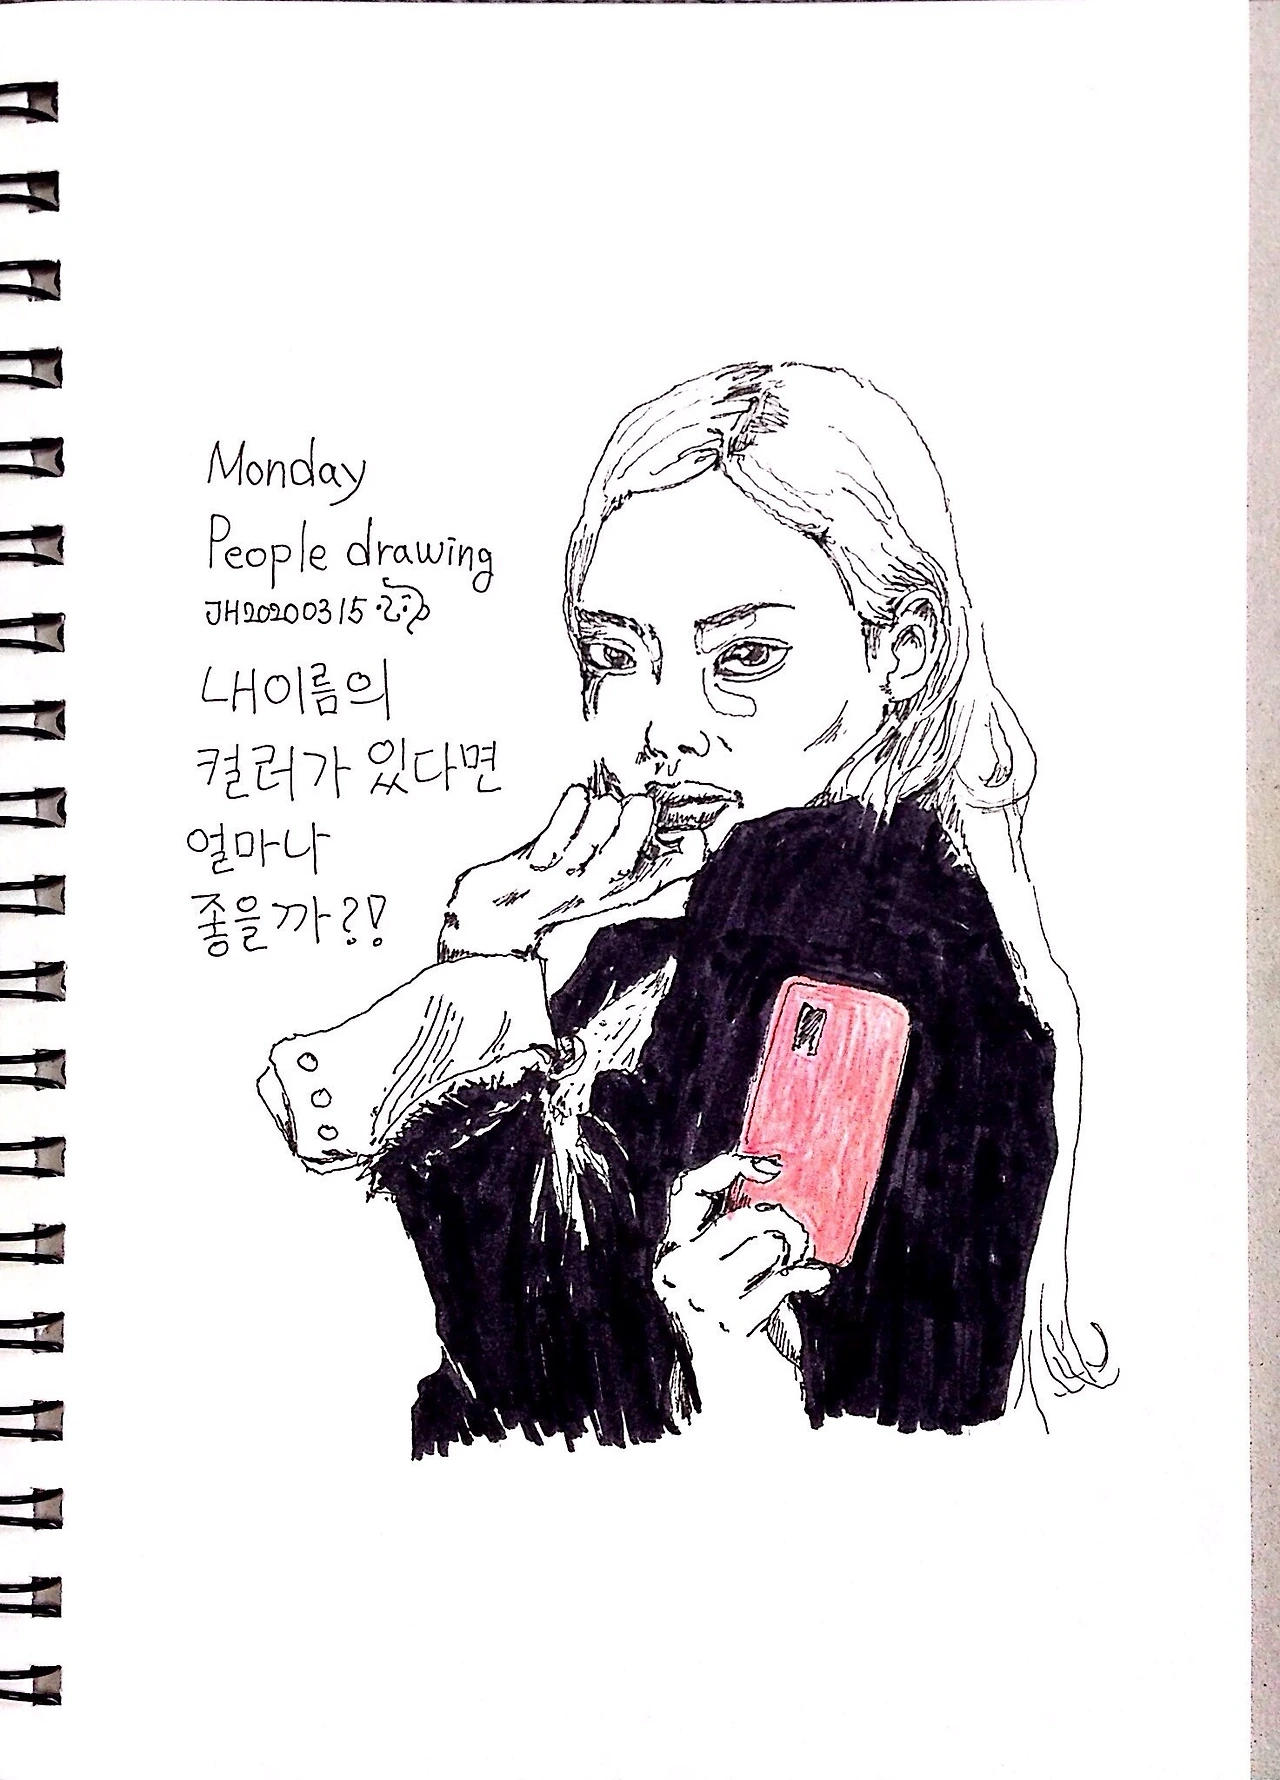 Monday
People drawing
JH20200315
내이름의
컬러가 있다면
얼마나
좋을까?!